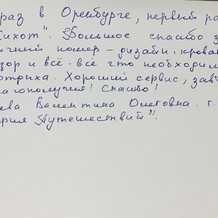 раз в Оренбурге, первый ра
ихот". Большое спасибо з
ичный номер - дизайн, крова
зор и всё-всё что необходим
отдыха. Хороший сервис, зав
лагополучия! Спасибо!
ева Валентина Олеговна. г.
ерия Путешествий".